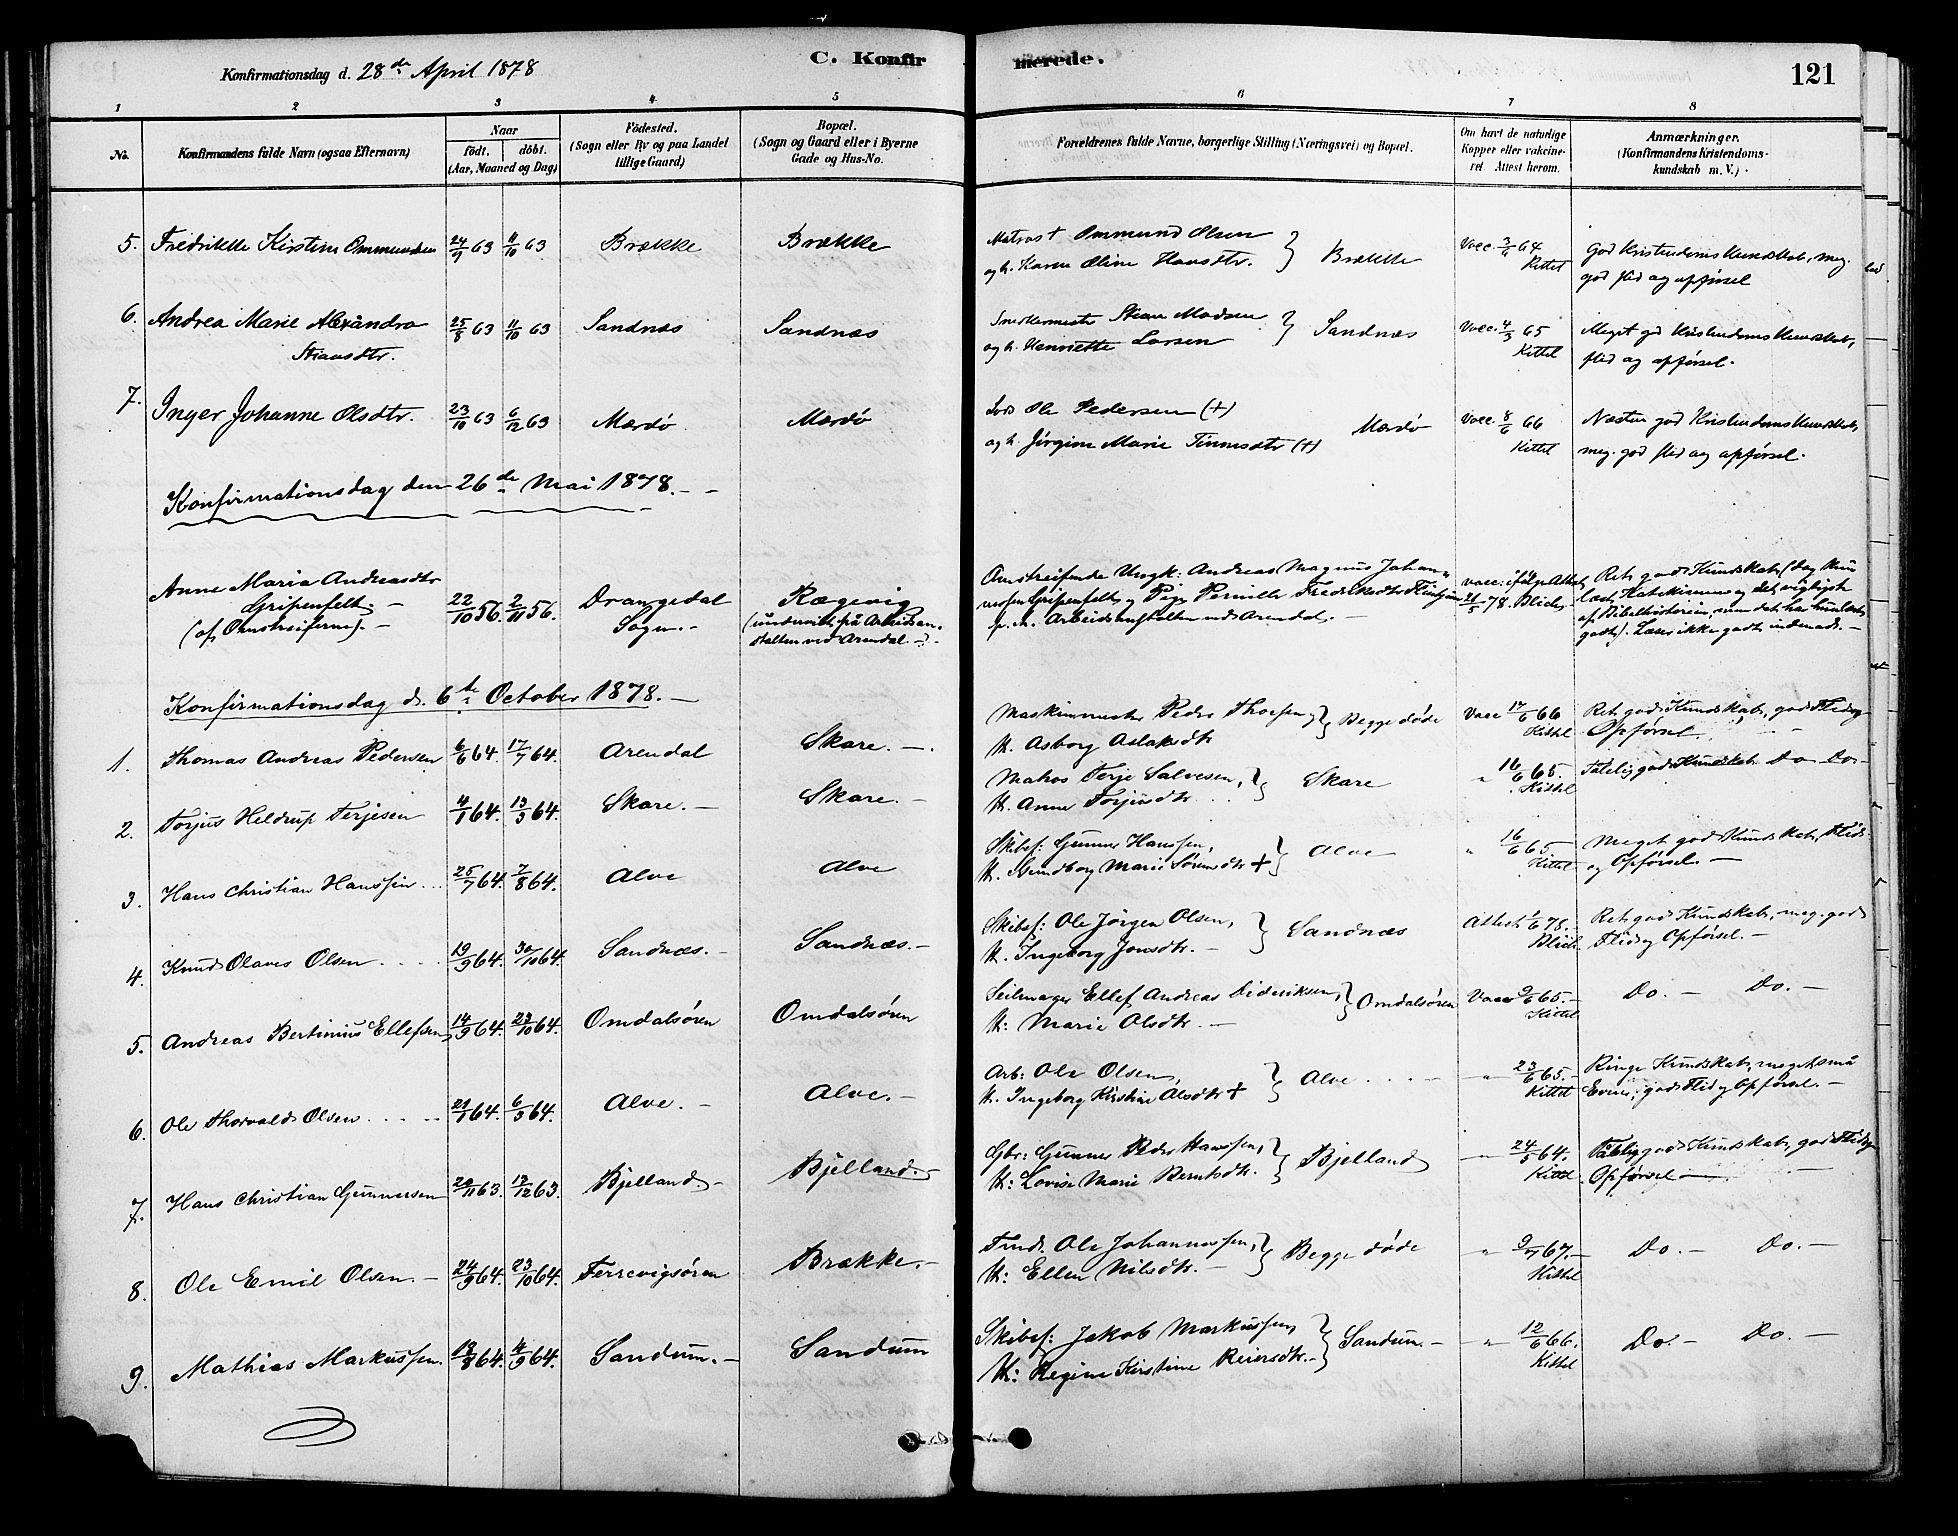 Konfirmationsdag d. 28de April 1878
C. Konfirmerede.
121
1 2 3 4 5 6 7 8
No.
Konfirmandens fulde Navn (ogsaa Efternavn)
Naar
födt. döbt.
(Aar, Maaned og Dag)
Födested.
(Sogn eller By og paa Landet
tillige Gaard)
Bopæl.
(Sogn og Gaard eller i Byerne
Gade og Hus-No.
Forældrenes fulde Navne, borgerlige Stilling (Næringsvei) og Bopæl.
Om havt de naturlige
Kopper eller vakcine-
ret Attest herom.
Anmærkninger.
(Konfirmandens Kristendoms-
kundskab m. V.)
5. Fredrikke Kirstine Ommundsen 24/9 63 11/10 63 Brække Brække
Matros † Ommund Olsen
og h. Karen Oline Hansdtr. } Brække
Vacc. 3/6 64
Kittel
god Kristendomskundskab, meg.
god flid og opførsel
6. Andrea Marie Alexandra
Stiansdtr. 25/8 63 11/10 63 Sandnæs Sandnæs
Snekkermester Stian Madsen
og h. Henriette Larsen } Sandnæs
Vacc. 4/3 65
Kittel
Meget god Kristendomskundskab,
flid og opførsel.
7. Inger Johanne Olsdtr. 23/10 63 6/12 63 Mærdø Mærdø
Lods Ole Pedersen (+)
og h. Jørgine Marie Tinnesdtr (+) Mærdø
Vacc. 8/6 66
Kittel
Næsten god Kristendomskundskab,
meg. god flid og opførsel.
Konfirmationsdag den 26de Mai 1878.
Anne Maria Andreasdtr
Gripenfelt
(af Omstreiferne). 22/10 56. 2/11 56. Drangedal
Sogn. Rægevig
(undervist på Arbeidsan-
stalten ved Arendal
Omstreifende Ungk: Andreas Magnus Johan-
nesen Gripenfelt, og Pige Pernille Fredriksdtr
p. t. Arbeidsanstalten ved Arendal.
Vacc: ifølge Attest
21/5 78. Blich
Ret god Kundskab (dog kun
læst Katekismus og det vigtigste
af Bibelhistorien, men det har hun lært
godt). Læser ikke godt indenad.
Konfirmationsdag d. 6te October 1878.
1. Thomas Andreas Pedersen 6/6 64. 17/7 64. Arendal Skare.
Maskinmester Peder Thorsen,
H. Asborg Aslaksdtr } Begge døde
Vacc 17/6 66
Kittel
Ret god Kundskab, god Flid og
Opførsel.
2. Torjus Heldrup Terjesen 4/1 64. 13/3 64. Skare. Skare.
Matros Terje Salvesen,
H. Anne Torjusdtr } Skare
" 16/6 65.
Kittel
Talelig god Kundskab. Do Do.
3. Hans Christian Hanssen 25/7 64. 7/8 64. Alve Alve
Skibsf: Gunner Hanssen,
H. Gundborg Marie Sørensdtr + } Alve
" 16/6 65.
Kittel
Meget god Kundskab, Flid
og Opførsel.
4. Knud Olaves Olsen 19/9 64. 30/10 64. Sandnæs. Sandnæs.
Skibsf: Ole Jörgen Olsen,
H. Ingeborg Jonsdtr. } Sandnæs
Attest 1/6 78.
Blich
Ret god Kundskab, meg. god
Flid og Opførsel.
5. Andreas Bertinius Ellefsen 14/9 64. 23/10 64. Omdalsören Omdalsören
Seilmager Ellef Andreas Dideriksen,
H: Marie Olsdtr. } Omdalsören
Vacc 9/6 65.
Kittel
Do. Do.
6. Ole Thorvald Olsen 21/1 64. 6/3 64. Alve. Alve.
Arb: Ole Olsen,
H. Ingeborg Kirstine Olsdtr + } Alve
" 23/6 65.
Kittel
Ringe Kundskab, meget små
Evner, god Flid og Opførsel.
7. Hans Christian Gunnersen 20/11 63. 13/12 63. Bjelland. Bjelland.
Gbr: Gunner Peder Hanssen,
H: Lovise Marie Berntsdtr. } Bjelland
" 24/5 64.
Kittel
Tålelig god Kundskab, god Flid og
Opførsel
8. Ole Emil Olsen. 24/9 64. 23/10 64. Ferrevigsören Brække.
Tmd. Ole Johannessen,
H: Ellen Nilsdtr. } Begge døde
" 9/7 67.
Kittel
Do. Do.
9. Mathias Markussen. 18/8 64. 4/9 64. Sandum. Sandum
Skibsf: Jakob Markussen,
H: Regine Kirstine Reiersdtr. } Sandum.
" 12/6 66.
Kittel
Do. Do.